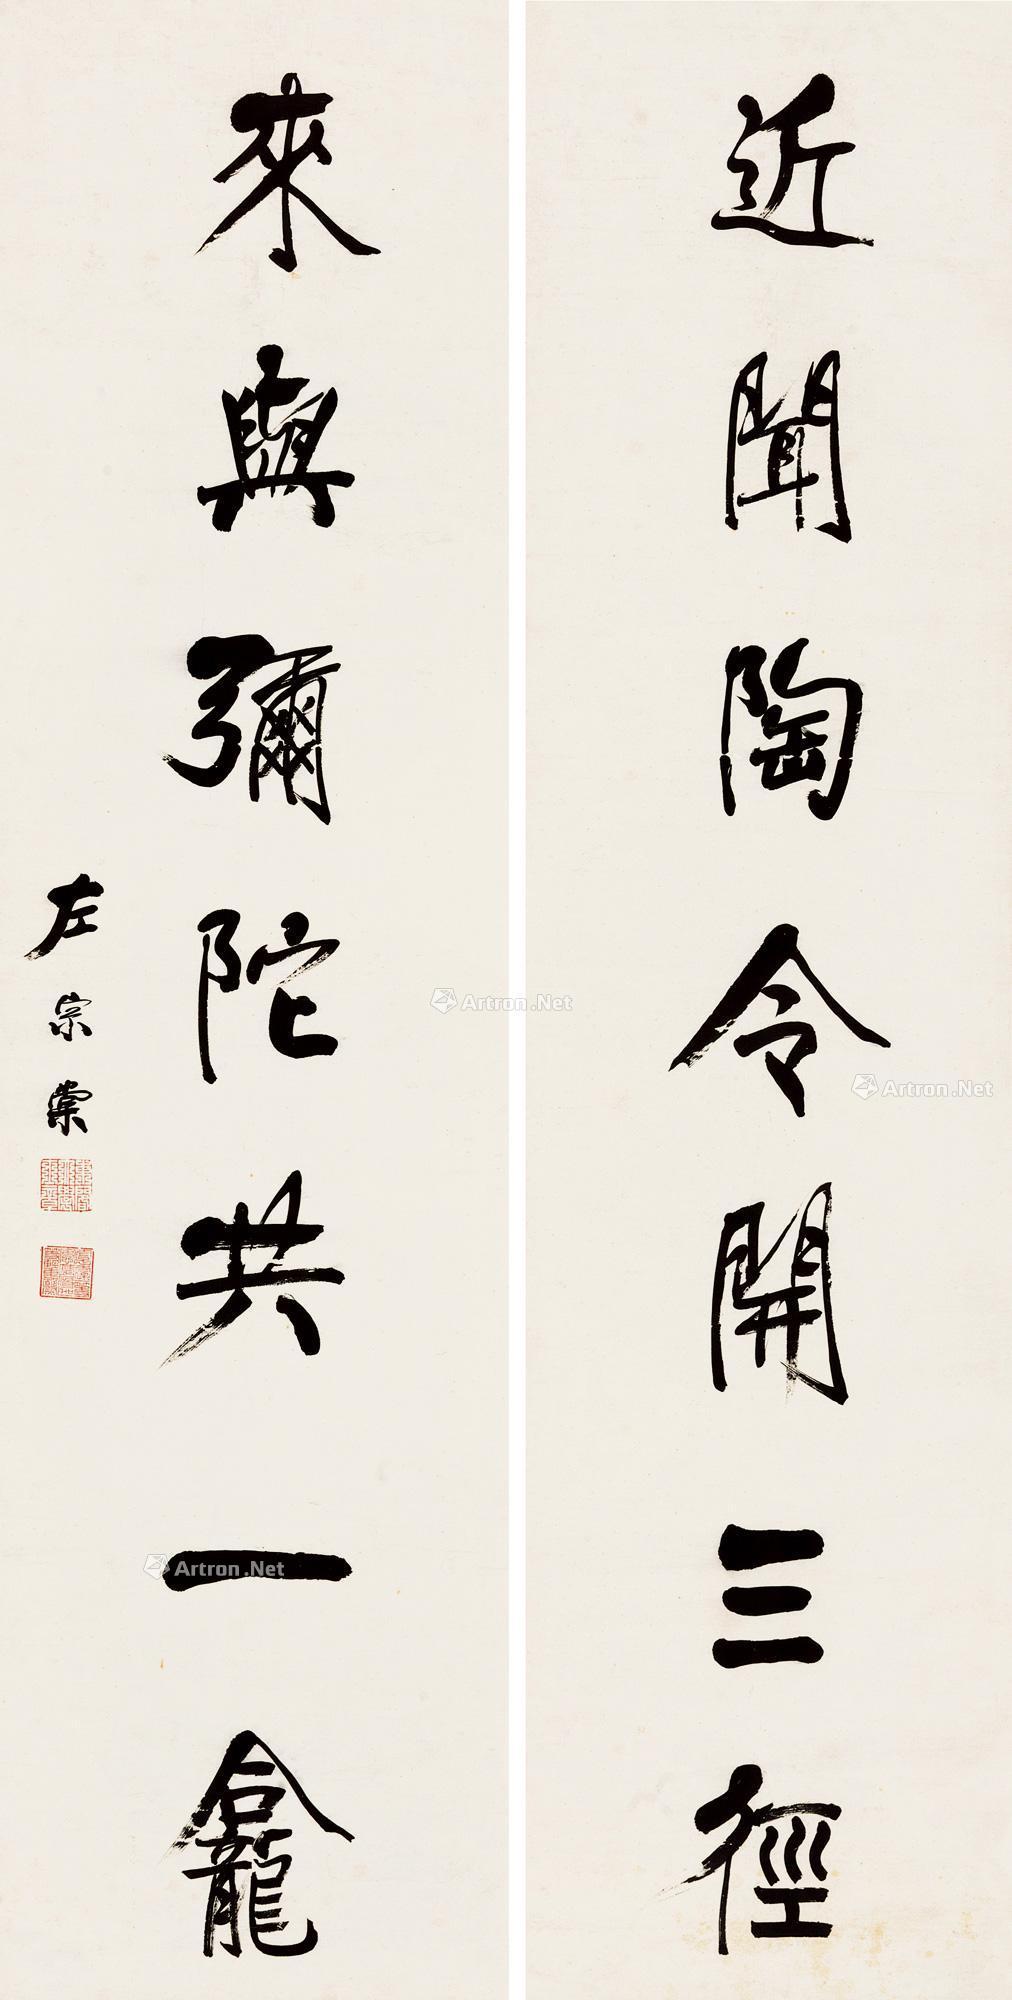 近聞陶令開三徑
來與彌陀共一龕
左宗棠
Artron.Net
Artron.Net
Artron.Net